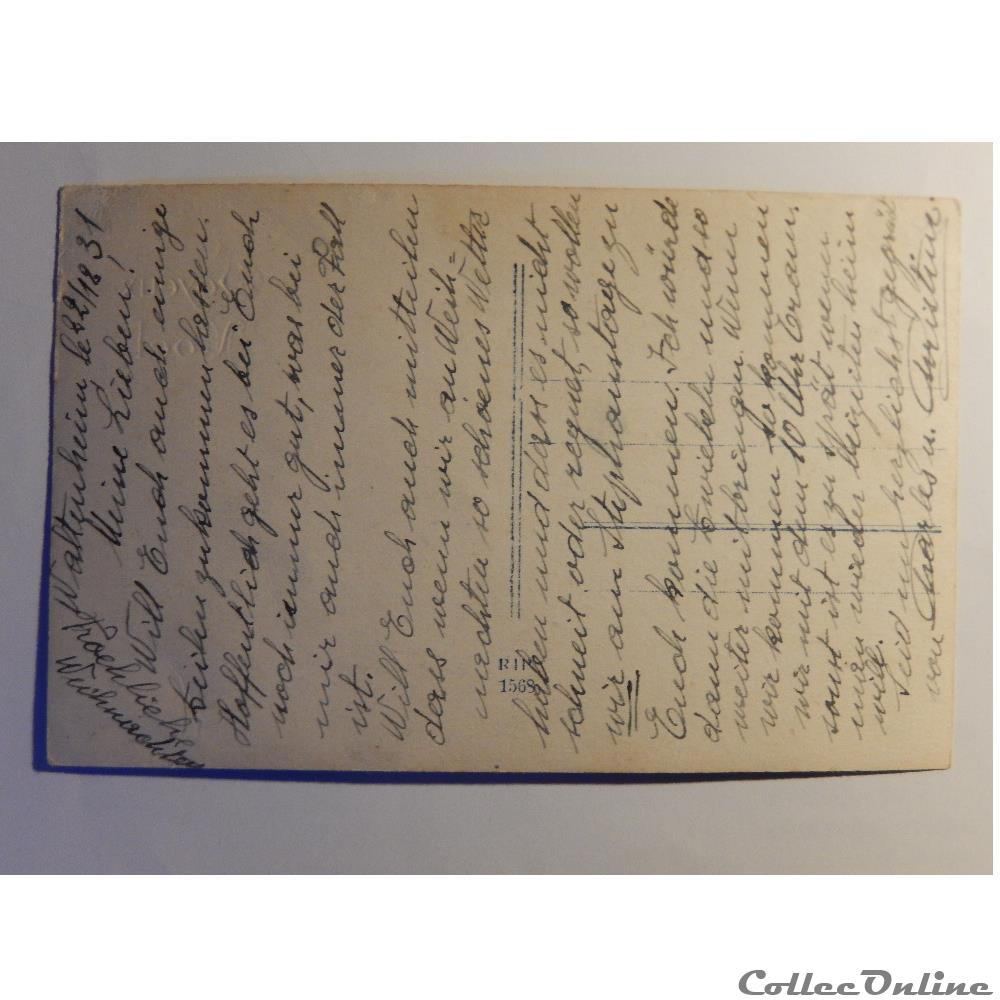 Waltenheim le 22/12 31
Meine Lieben!
Will Euch auch einige
Zeilen zukommen lassen.
Hoffentlich geht es bei Euch
noch immer gut, was bei
mir auch immer der Fall
ist.
Will Euch auch mitteilen
dass wenn wir an Weih=
nachten so schönes Wetter
haben und dass es nicht
schneit oder regnet, so wollen
wir am Stephanstage zu
Euch kommen. Ich würde
dann die Zwiebeln und so
weiter mitbringen. Wenn
wir kommen so kommen
wir mit dem 10 Uhr Tram.
sonst ist es zu spät wenn
man wieder beizeiten heim
will.
Seid nun herzlichst gegrüßt
von Charles u. Christine.
Fröhliche
Weihnachten
RIP
1568
CollecOnline